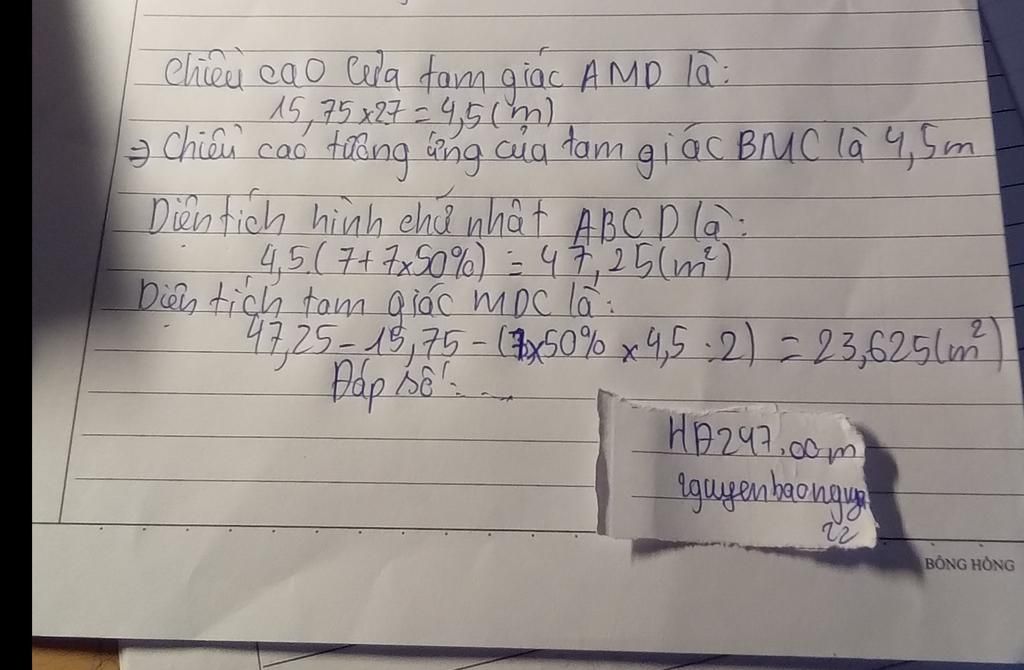 Chiều cao của tam giác AMD là:
15,75 x 2:7 = 4,5 (m)
=> Chiều cao tương ứng của tam giác BMC là 4,5m
Diện tích hình chữ nhật ABCD là:
4,5.(7+7x50%) = 47,25(m²)
Diện tích tam giác MDC là:
47,25 - 15,75 - (7x50% x 4,5 : 2) = 23,625(m²)
Đáp số: ...
HĐ247.com
nguyenbaonguyen
22
BÔNG HỒNG